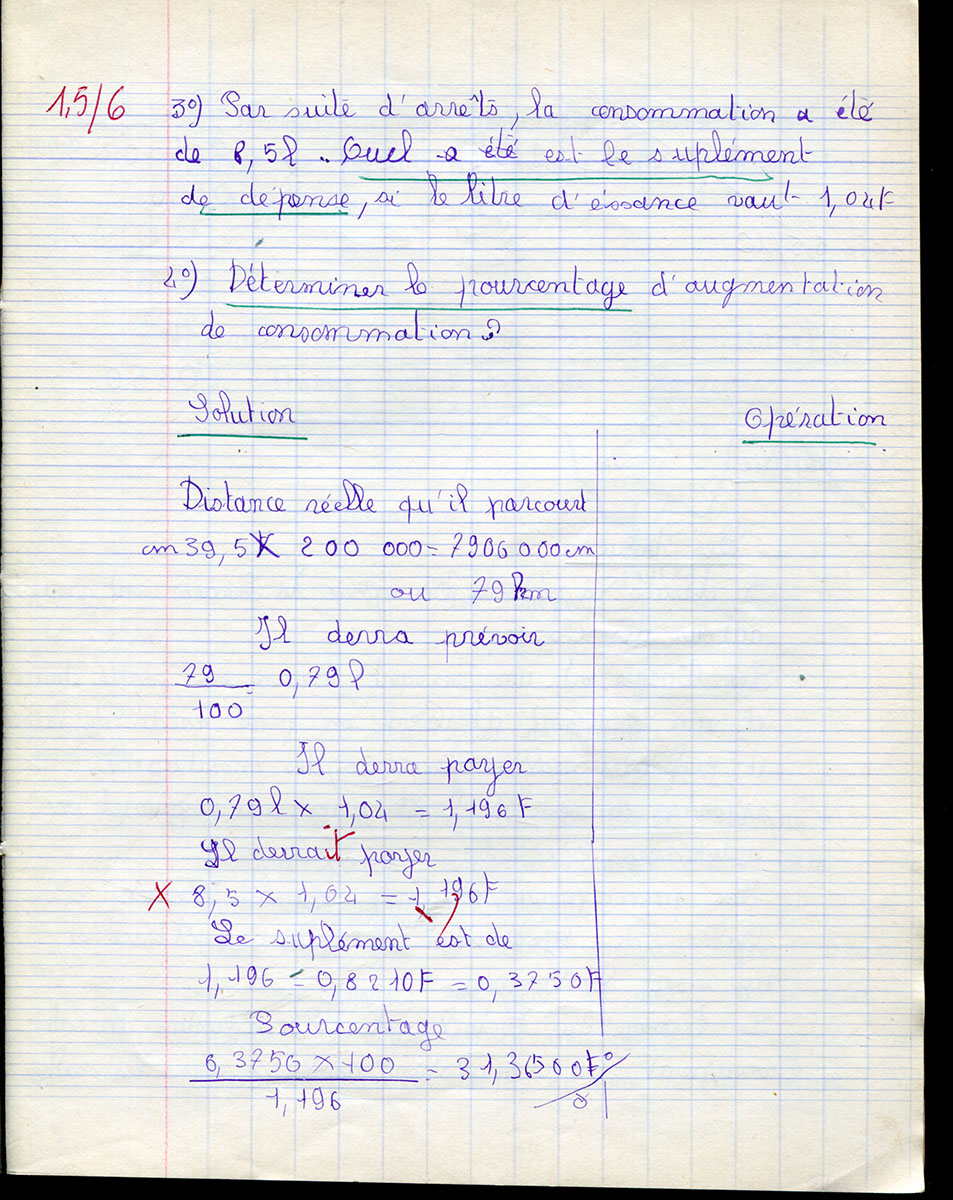 1,5/6
3°) Par suite d'arrêts, la consommation a été
de 8,5l.. Quel a été est le suplément
de dépense, si le litre d'éssance vaut 1,04F
2°) Déterminer le pourcentage d'augmentation
de consommation?
Solution
Opération
Distance réelle qu'il parcourt
cm 39,5 X 200 000 = 7906 000 cm
ou 79 km
Il devra prévoir
79/100 = 0,79 l
Il devra payer
0,79 l x 1,04 = 1,196 F
Il devrait payer
X 8,5 x 1,04 = 1,196 F
Le suplément est de
1,196 - 0,8210F = 0,3750F
Pourcentage
0,3750 x 100 / 1,196 = 31,3650